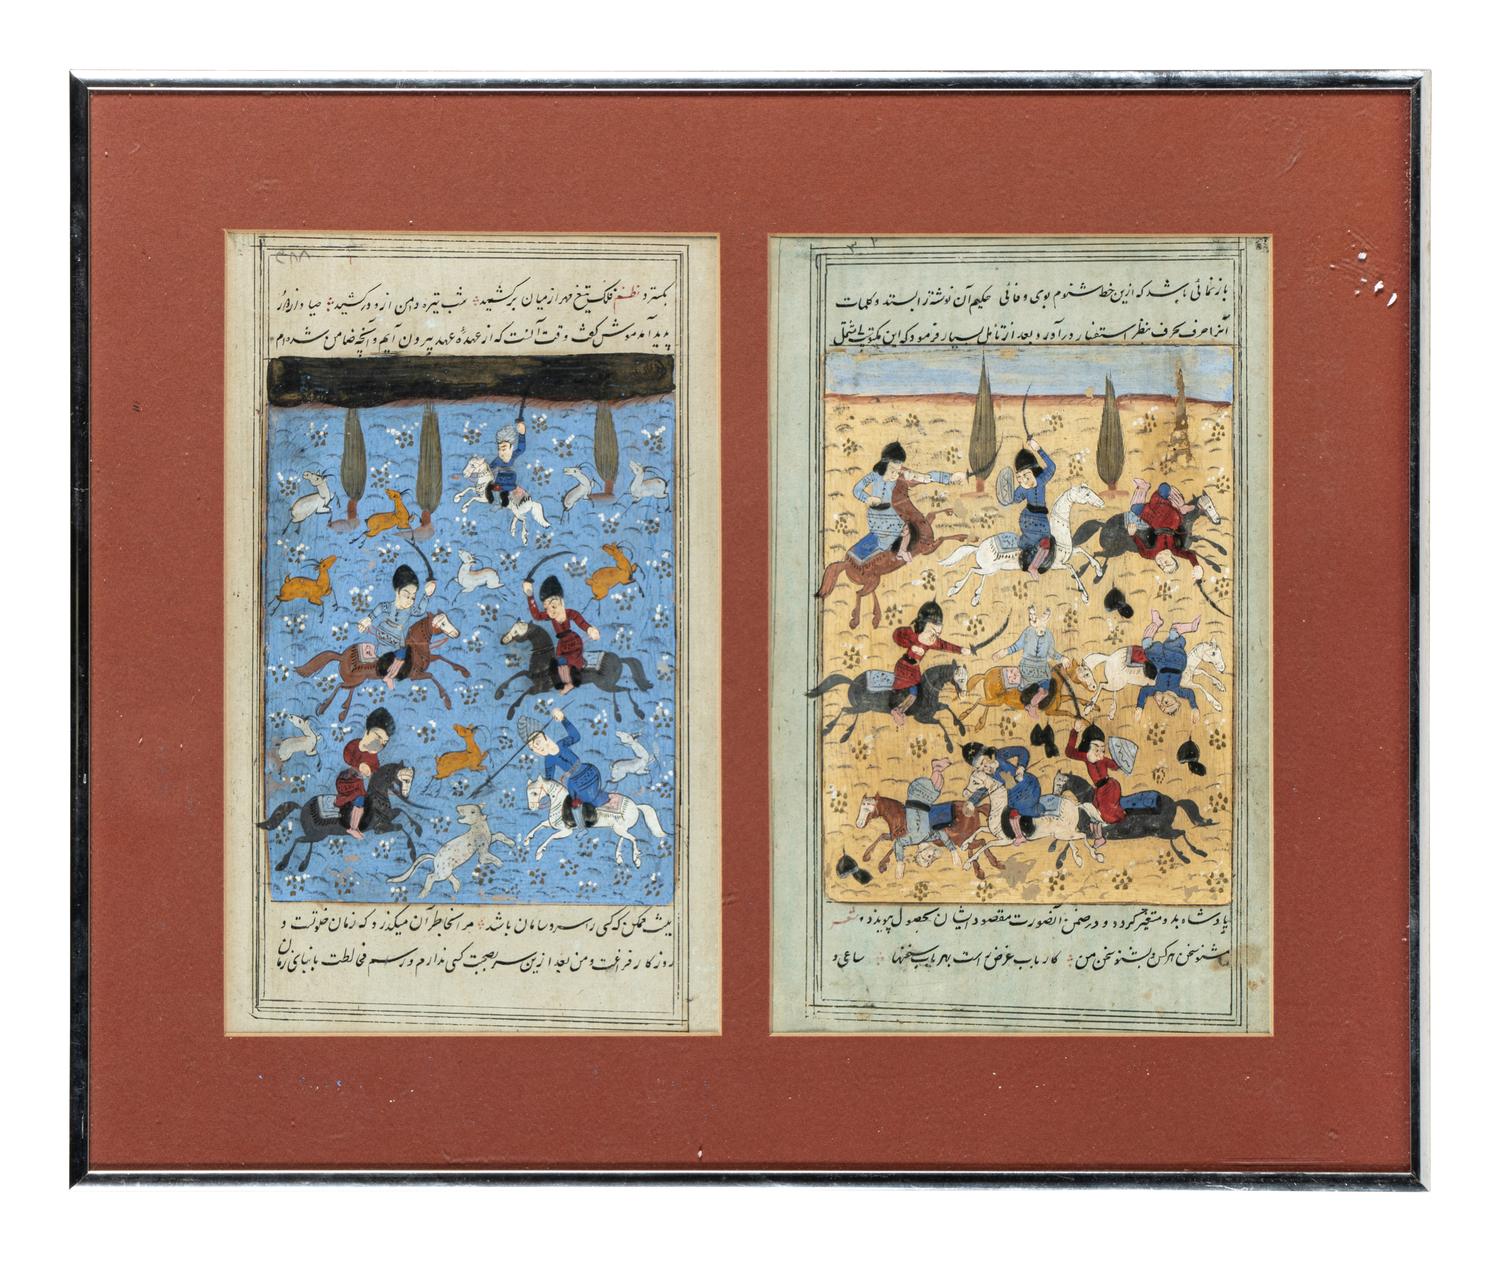 بگسترد نظم فلک تیغ مهر از میان برکشید شب تیره دامن از و درکشید صیا دار دور
پدید آمد موش گفت وقت آنست که از عهدهٔ عهد بیرون آیم و آنچه ضامن شده ام
نیست ممکن که کسی را سر و سامان باشد هر آنجا طر آن میگذرد که زمان خوتست و
روزکار فراغت و من بعد ازین سر صحبت کسی ندارم و رسم مخالطت با بنیای زمان
باز نمائی باشد که ازین خط شنوم بوی وفائی حکیم آن نوشته را بستد و کلمات
آنرا حرف بحرف نظر استغفار درآورد و بعد از تأمل بسیار فرمود که این مکتوب مشتمل
پادشاه بد و متغیر گردد و در ضمن آنصورت مقصود یشان بحصول پیوندد شعر
مشنو سخن هر کس و بشنو سخن من کار باب غرض است بهر باب سخنها ساعی و